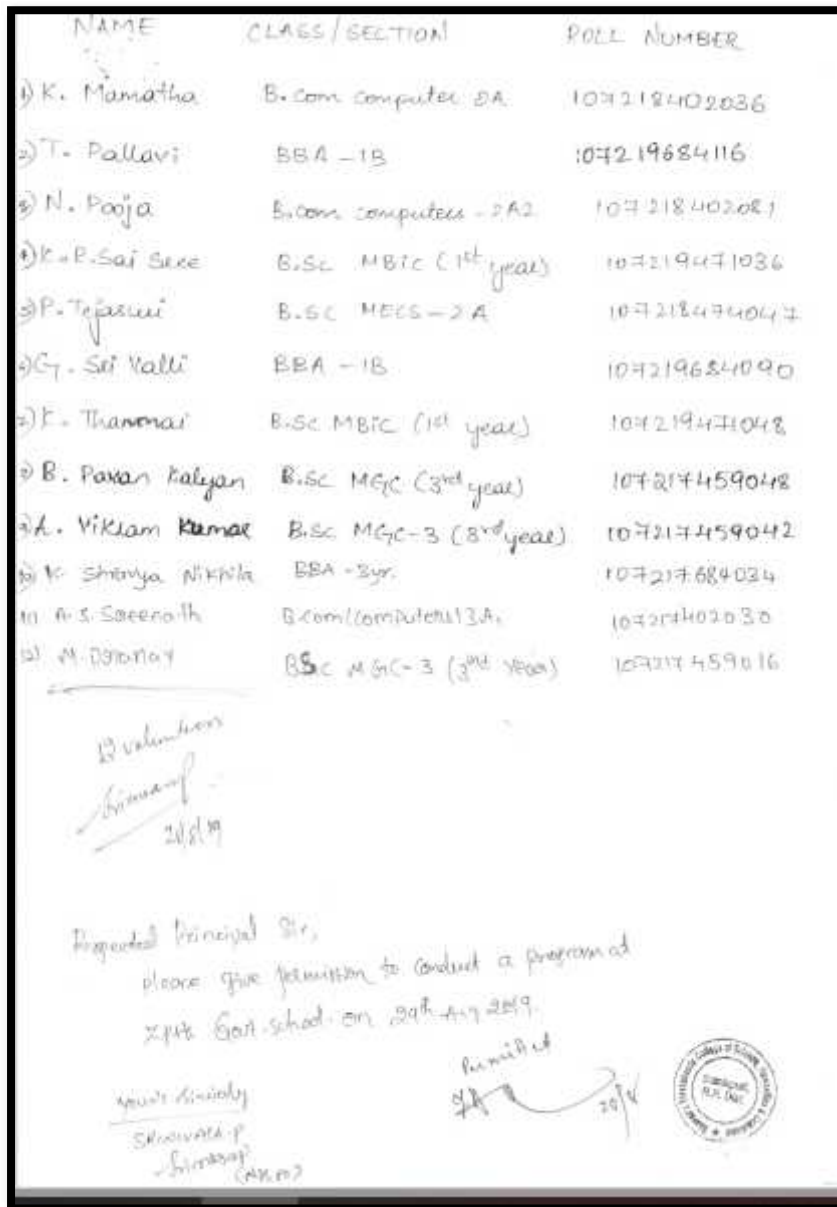 NAME CLASS/SECTION ROLL NUMBER
1) K. Mamatha B.com computer 2A 107218402036
2) T. Pallavi BBA - 1B 107219684116
3) N. Pooja B.com computers - 2A2 107218402081
4) K.P. Sai Sree B.Sc MBIC (1st year) 107219471036
5) P. Tejaswi B.SC MECS - 2A 107218474047
6) G. Sri Valli BBA - 1B 107219684090
7) K. Thanmai B.Sc MBIC (1st year) 107219471048
8) B. Pavan Kalyan B.SC MGC (3rd year) 107217459048
9) A. Vikram Kumar B.SC MGC-3 (3rd year) 107217459042
10) K. Shravya Nikhila BBA - 3yr. 107217684034
11) A.S. Sreenath B.com (computers) 3A. 107217402030
12) M. BSc MGC-3 (3rd year) 107217459016
12
Respected Principal Sir,
please give permission to conduct a program at
ZPHS Govt. school on 29th Aug 2019.
Permitted
Your's sincerely
SRINIVASA.P